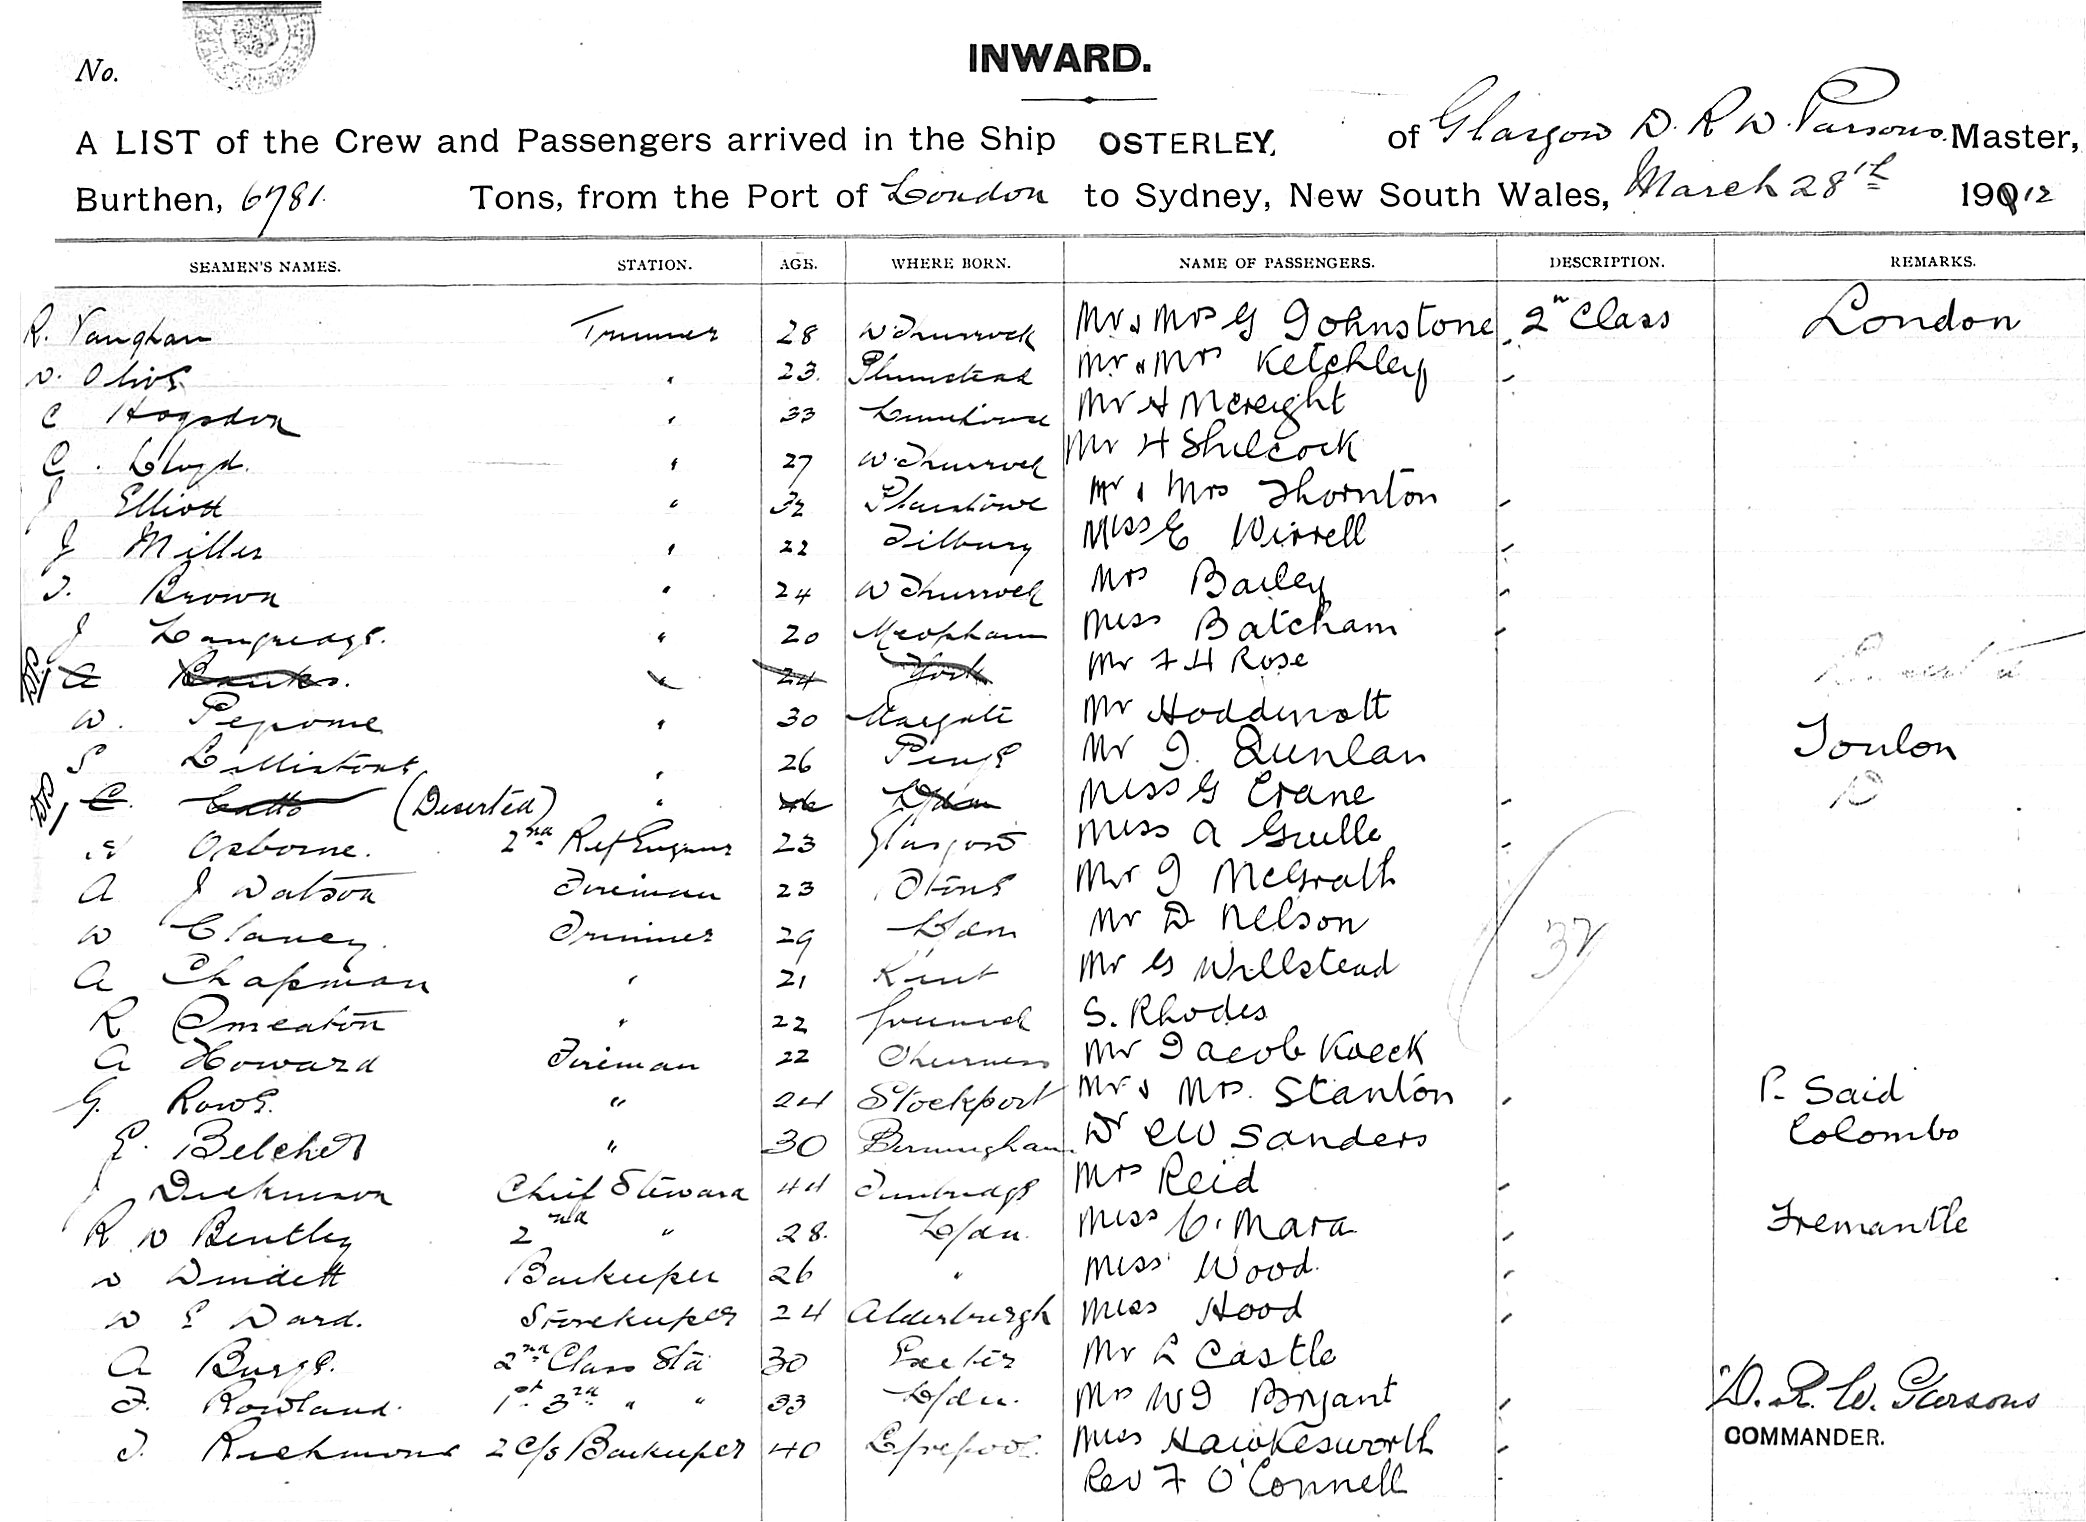 No.
INWARD.
A LIST of the Crew and Passengers arrived in the Ship OSTERLEY, of Glasgow D. R W. Parsons. Master,
Burthen, 6781. Tons, from the Port of London to Sydney, New South Wales, March 28th 1912
SEAMEN'S NAMES. STATION. AGE. WHERE BORN. NAME OF PASSENGERS. DESCRIPTION. REMARKS.
R. Vaughan Trimmer 28 W. Thurrock Mr & Mrs G Johnstone 2n Class London
D. Olive " 23. Plumstead Mr & Mrs Ketchley "
C Hogsdon " 33 Limehouse Mr H McCreight
C. Lloyd. " 27 W. Thurrock Mr H Shilcock
J Elliott " 32 Plaistowe Mr & Mrs Thornton "
J Miller " 22 Tilbury Miss E Wirrell "
T. Brown " 24 W Thurrock Mrs Bailey "
J Langredge. " 20 Meopham Miss Batcham "
A Banks. " 24 York Mr F H Rose
W. Pepome " 30 Margate Mr Hoddinott
S Lillistone " 26 Penge Mr J. Qunlan Toulon
C. Catto (Deserted) " L/don Miss G Crane " D
Osborne. 2nd Ref Engineer 23 Glasgow Miss A Guille "
A J Watson Fireman 23 Stone Mr J McGrath
W Clancy. Trimmer 29 L/don Mr D Nelson 37
A Chapman " 21 Kent Mr G Willstead
R Smeaton " 22 Greenwich S. Rhodes
A Howard Fireman 22 Sheerness Mr Jacob Kaeck
G. Rowe. " 24 Stockport Mr & Mrs. Stanton " P. Said
E. Belcher " 30 Birmingham. Dr C W Sanders Colombo
J Dickinson Chief Steward 44 Tunbridge Mrs Reid "
R W Bentley 2nd " 28. L/don. Miss O'Mara " Fremantle
W Windett Barkeeper 26 " Miss Wood. "
W E Ward. Storekeeper 24 Alderburgh Miss Hood "
A Burge. 2nd Class Std 30 Exeter Mr L Castle
F. Rowland. 1st 3rd " " 33 L/don. Mrs W J Bryant " D. R. W. Parsons
T. Richmond 2 C/s Barkeeper 40 L/verpool. Miss Hawkesworth " COMMANDER.
Rev F O'Connell "